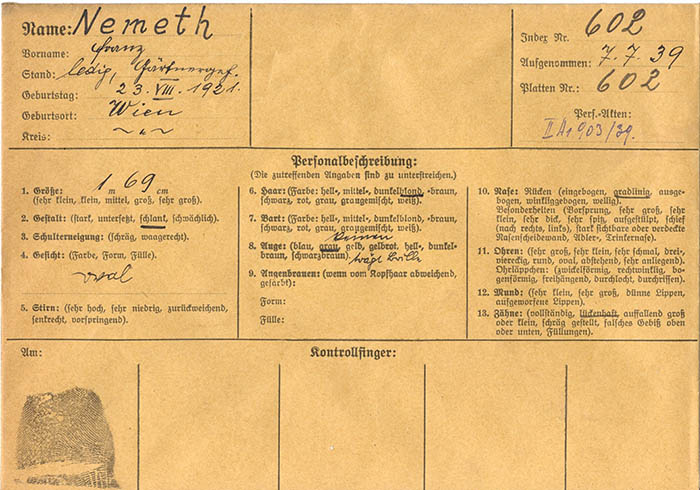 Name: Nemeth
Vorname: Franz
Stand: ledig, Gärtnergeh.
Geburtstag: 23. VIII. 1921.
Geburtsort: Wien
Kreis: - „ -
Index Nr. 602
Aufgenommen: 7. 7. 39
Platten Nr.: 602
Pers.-Akten:
II A1 903/39.
Personalbeschreibung:
(Die zutreffenden Angaben sind zu unterstreichen.)
1. Größe: 1 m 69 cm
(sehr klein, klein, mittel, groß, sehr groß).
2. Gestalt: (stark, untersetzt, schlank, schwächlich).
3. Schulterneigung: (schräg, waagerecht).
4. Gesicht: (Farbe, Form, Fülle).
oval
5. Stirn: (sehr hoch, sehr niedrig, zurückweichend,
senkrecht, vorspringend).
6. Haar: (Farbe: hell-, mittel-, dunkelblond, -braun,
schwarz, rot, grau, graugemischt, weiß).
7. Bart: (Farbe: hell-, mittel-, dunkelblond, -braun,
schwarz, rot, grau, graugemischt, weiß).
keinen
8. Auge: (blau, grau, gelb, gelbrot, hell-, dunkel-
braun, schwarzbraun). trägt Brille
9. Augenbrauen: (wenn vom Kopfhaar abweichend,
gefärbt):
Form:
Fülle:
10. Nase: Rücken (eingebogen, gradlinig, ausge-
bogen, winkliggebogen, wellig).
Besonderheiten (Vorsprung, sehr groß, sehr
klein, sehr dick, sehr spitz, aufgestülpt, schief
(nach rechts, links), stark sichtbare oder verdeckte
Nasenscheidewand, Adler-, Trinkernase).
11. Ohren: (sehr groß, sehr klein, sehr schmal, drei-,
viereckig, rund, oval, abstehend, sehr anliegend).
Ohrläppchen: (zwickelförmig, rechtwinklig, bo-
genförmig, freihängend, durchlocht, durchrissen).
12. Mund: (sehr klein, sehr groß, dünne Lippen,
aufgeworfene Lippen).
13. Zähne: (vollständig, lückenhaft, auffallend groß
oder klein, schräg gestellt, falsches Gebiß oben
oder unten, Füllungen).
Am:
Kontrollfinger: